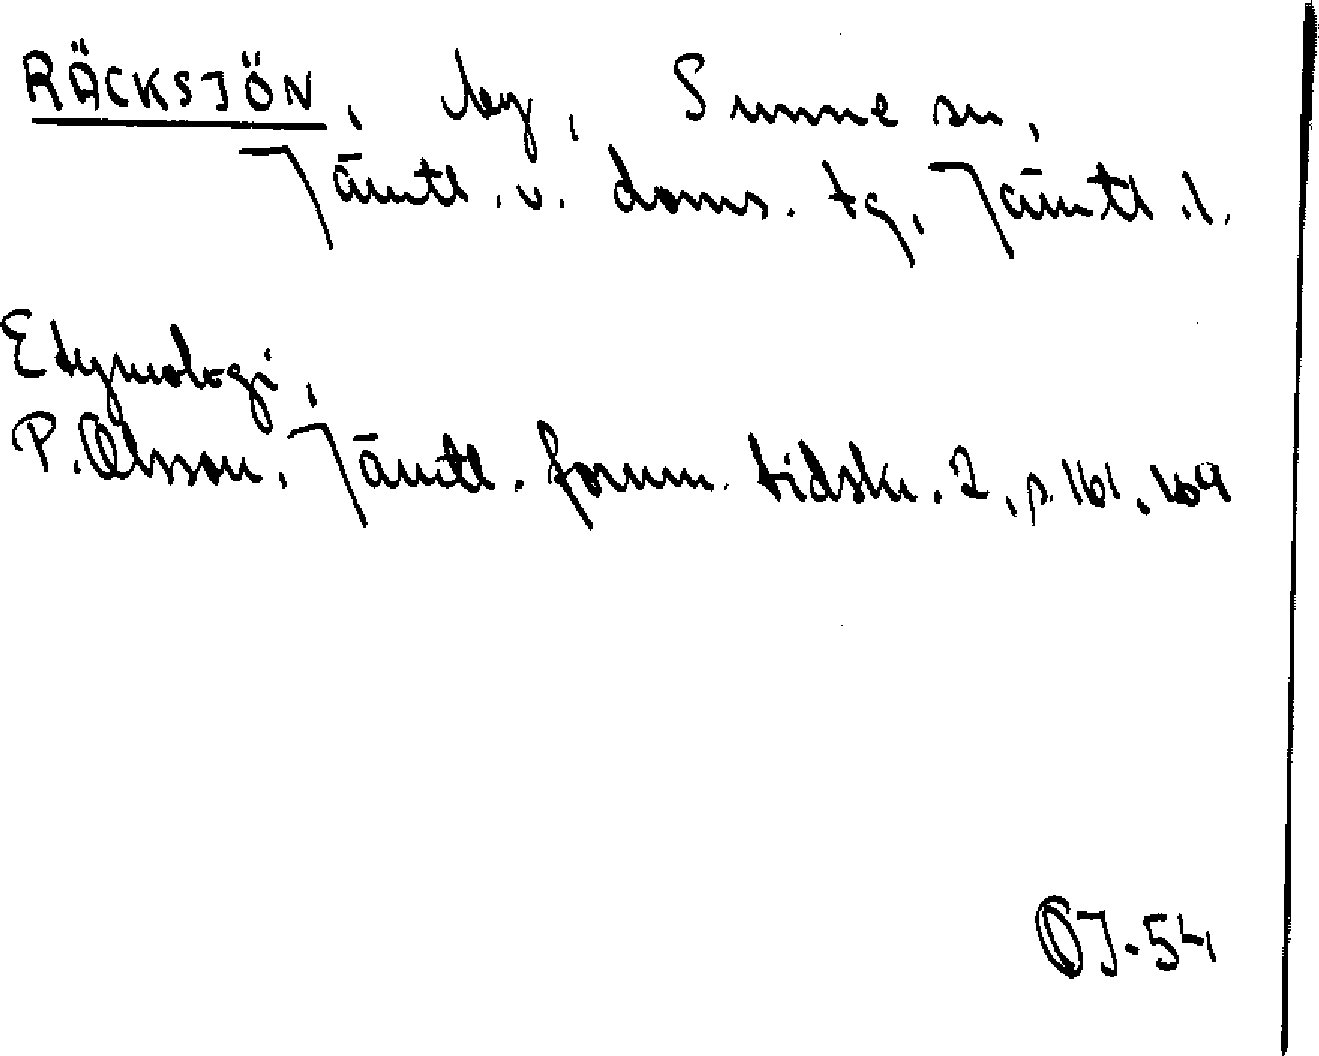 RÄCKSJÖN, by, Sunne sn,
Jämtl. v. doms. tg, Jämtl. l.
Etymologi,
P. Olsson, Jämtl. fornm. tidskr. 2, p. 161, 169
OJ-54